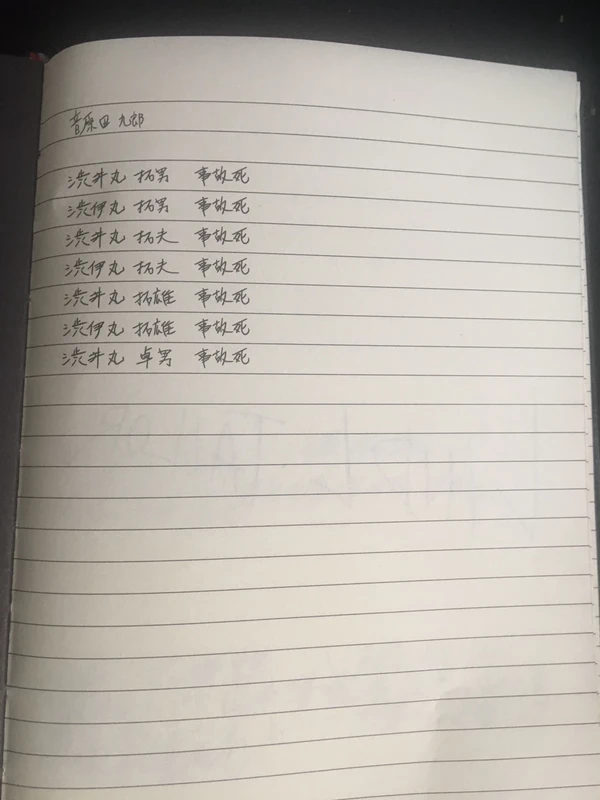 音原田 九郎
渋井丸 拓男 事故死
渋伊丸 拓男 事故死
渋井丸 拓夫 事故死
渋伊丸 拓夫 事故死
渋井丸 拓雄 事故死
渋伊丸 拓雄 事故死
渋井丸 卓男 事故死